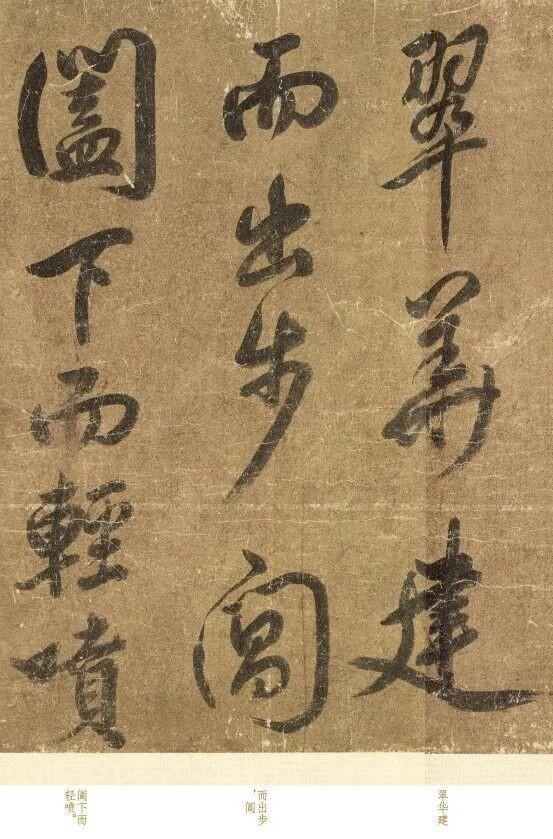 翠華建
而出步閶
闔下而輕噴
翠华建
而出步
，阊
阖下而
轻喷。